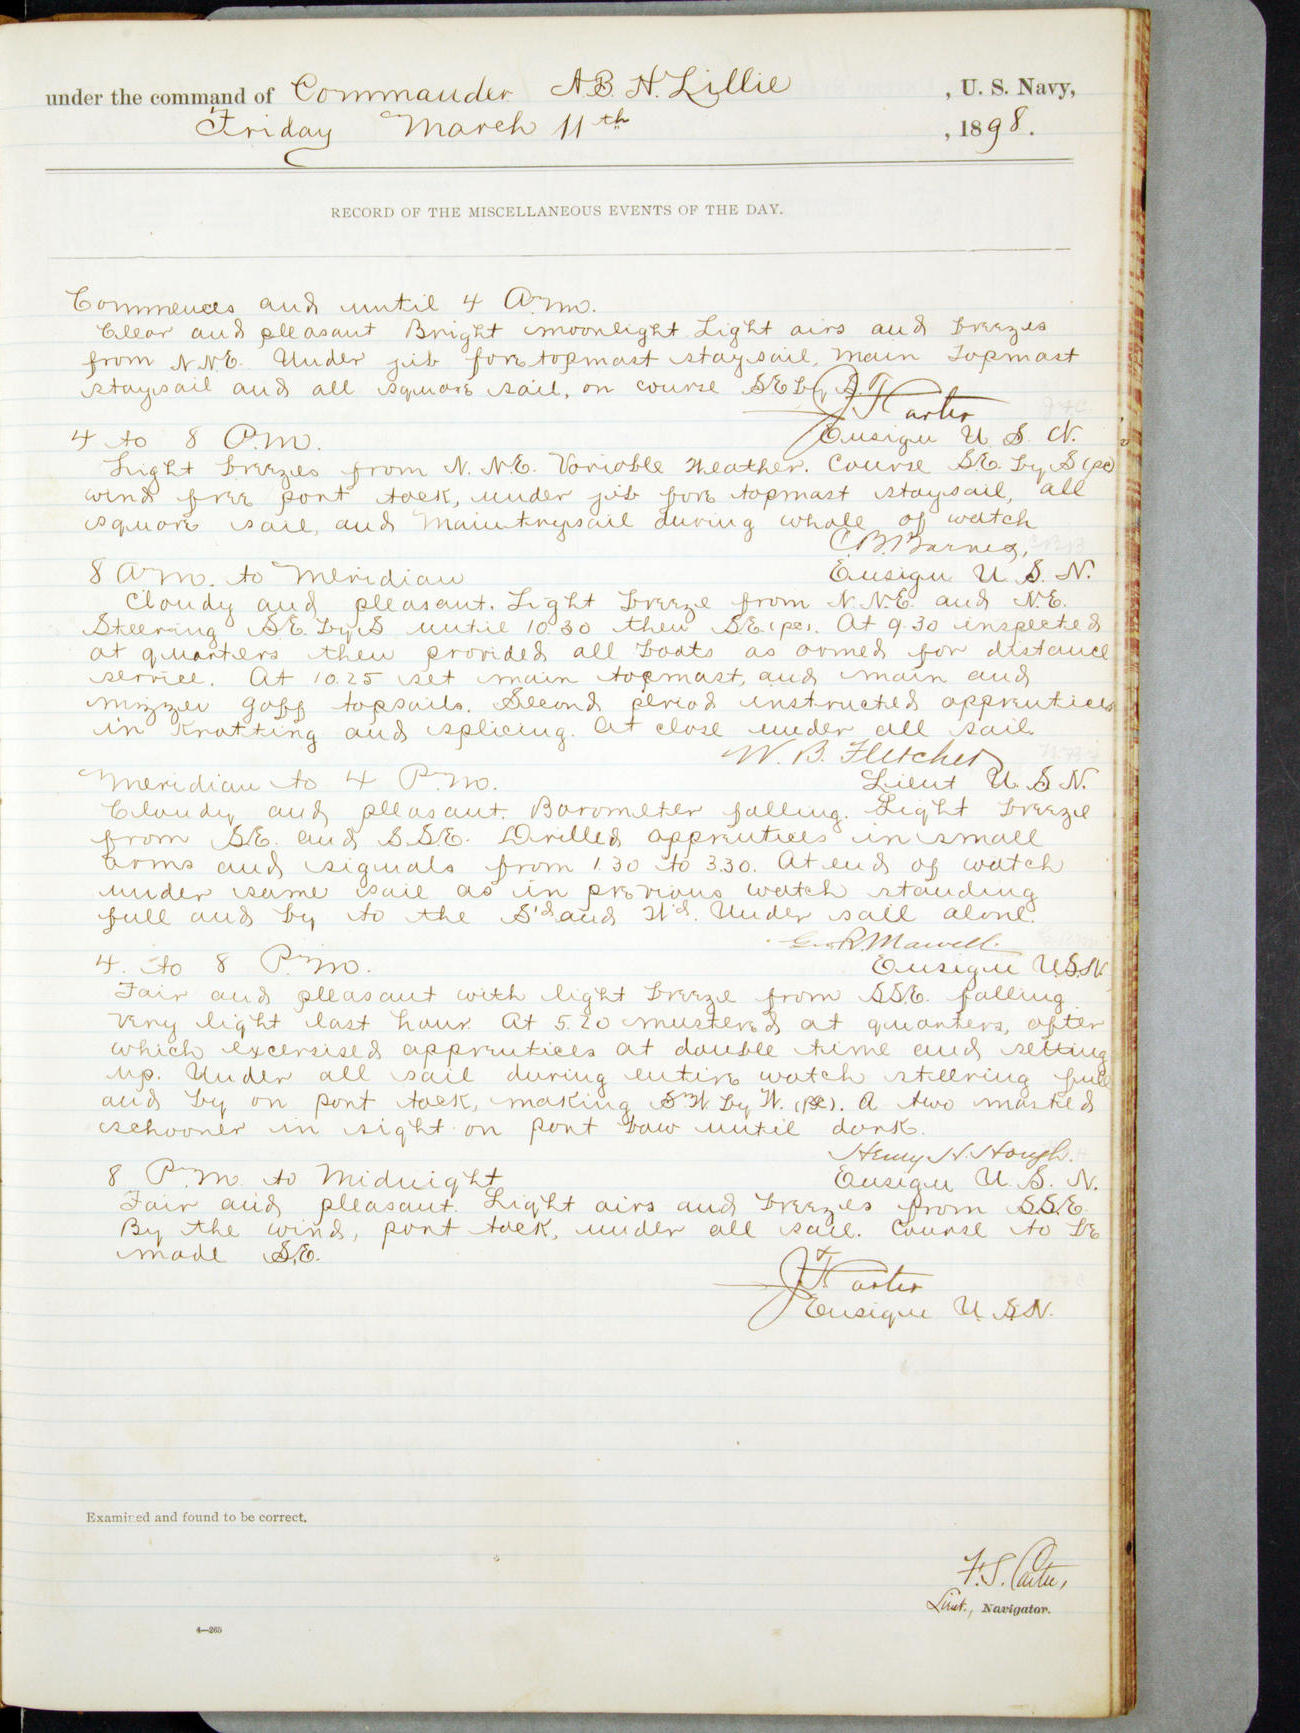 under the command of Commander A.B.H. Lillie, U. S. Navy,
Friday March 11th, 1898.
RECORD OF THE MISCELLANEOUS EVENTS OF THE DAY.
Commences and until 4 A.m.
Clear and pleasant Bright moonlight Light airs and breezes
from N.N.E. Under jib fore topmast staysail, main topmast
staysail and all square sail, on course SE by S.
J F Carter
Ensign U. S. N.
4 to 8 P.m.
Light breezes from N. N.E. Variable weather. Course SE. by S (pc)
wind free port tack, under jib fore topmast staysail, all
square sail, and Maintrysail during whole of watch
C.B. Barnes,
Ensign U. S. N.
8 A.m. to Meridian
Cloudy and pleasant. Light breeze from N.N.E. and N.E.
Steering SE. by S until 10.30 then SE. (pc). At 9.30 inspected
at quarters then provided all boats as armed for distance
service. At 10.25 set main topmast, and main and
mizzen gaff topsails. Second period instructed apprentices
in Knotting and splicing. At close under all sail.
W. B. Fletcher
Lieut U. S. N.
Meridian to 4 P.m.
Cloudy and pleasant. Barometer falling. Light breeze
from SE. and S.SE. Drilled apprentices in small
arms and signals from 1.30 to 3.30. At end of watch
under same sail as in previous watch standing
full and by to the S'd and W'd. Under sail alone.
Ensign U.S.N.
4. to 8 P.m.
Fair and pleasant with light breeze from SSE. falling
very light last hour. At 5.20 mustered at quarters, after
which excersised apprentices at double time and setting
up. Under all sail during entire watch steering full
and by on port tack, making S.W. by W. (pc). A two masted
schooner in sight on port bow until dark.
Henry H. Hough.
Ensign U. S. N.
8 P.m. to Midnight
Fair and pleasant. Light airs and breezes from SSE.
By the wind, port tack, under all sail. Course to be
made S.E.
J F Carter
Ensign U. S.N.
Examined and found to be correct.
F.S. Carter,
Lieut., Navigator.
4—265